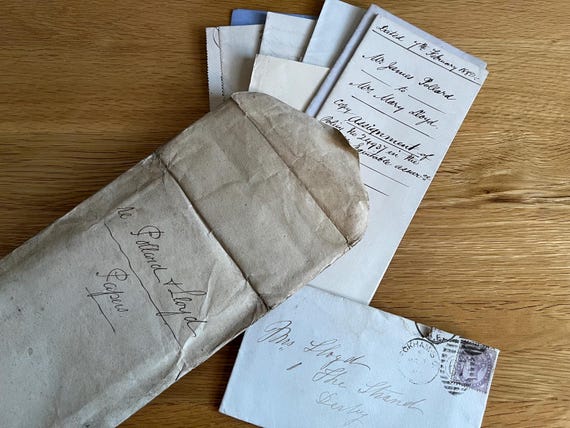 Dated 7th February 1880
Mr. James Pollard
to
Mrs. Mary Lloyd.
Copy Assignment of
Policy No 24937 in the
Equitable
Pollard & Lloyd
Papers
Mrs Lloyd
1 The Strand
Derby